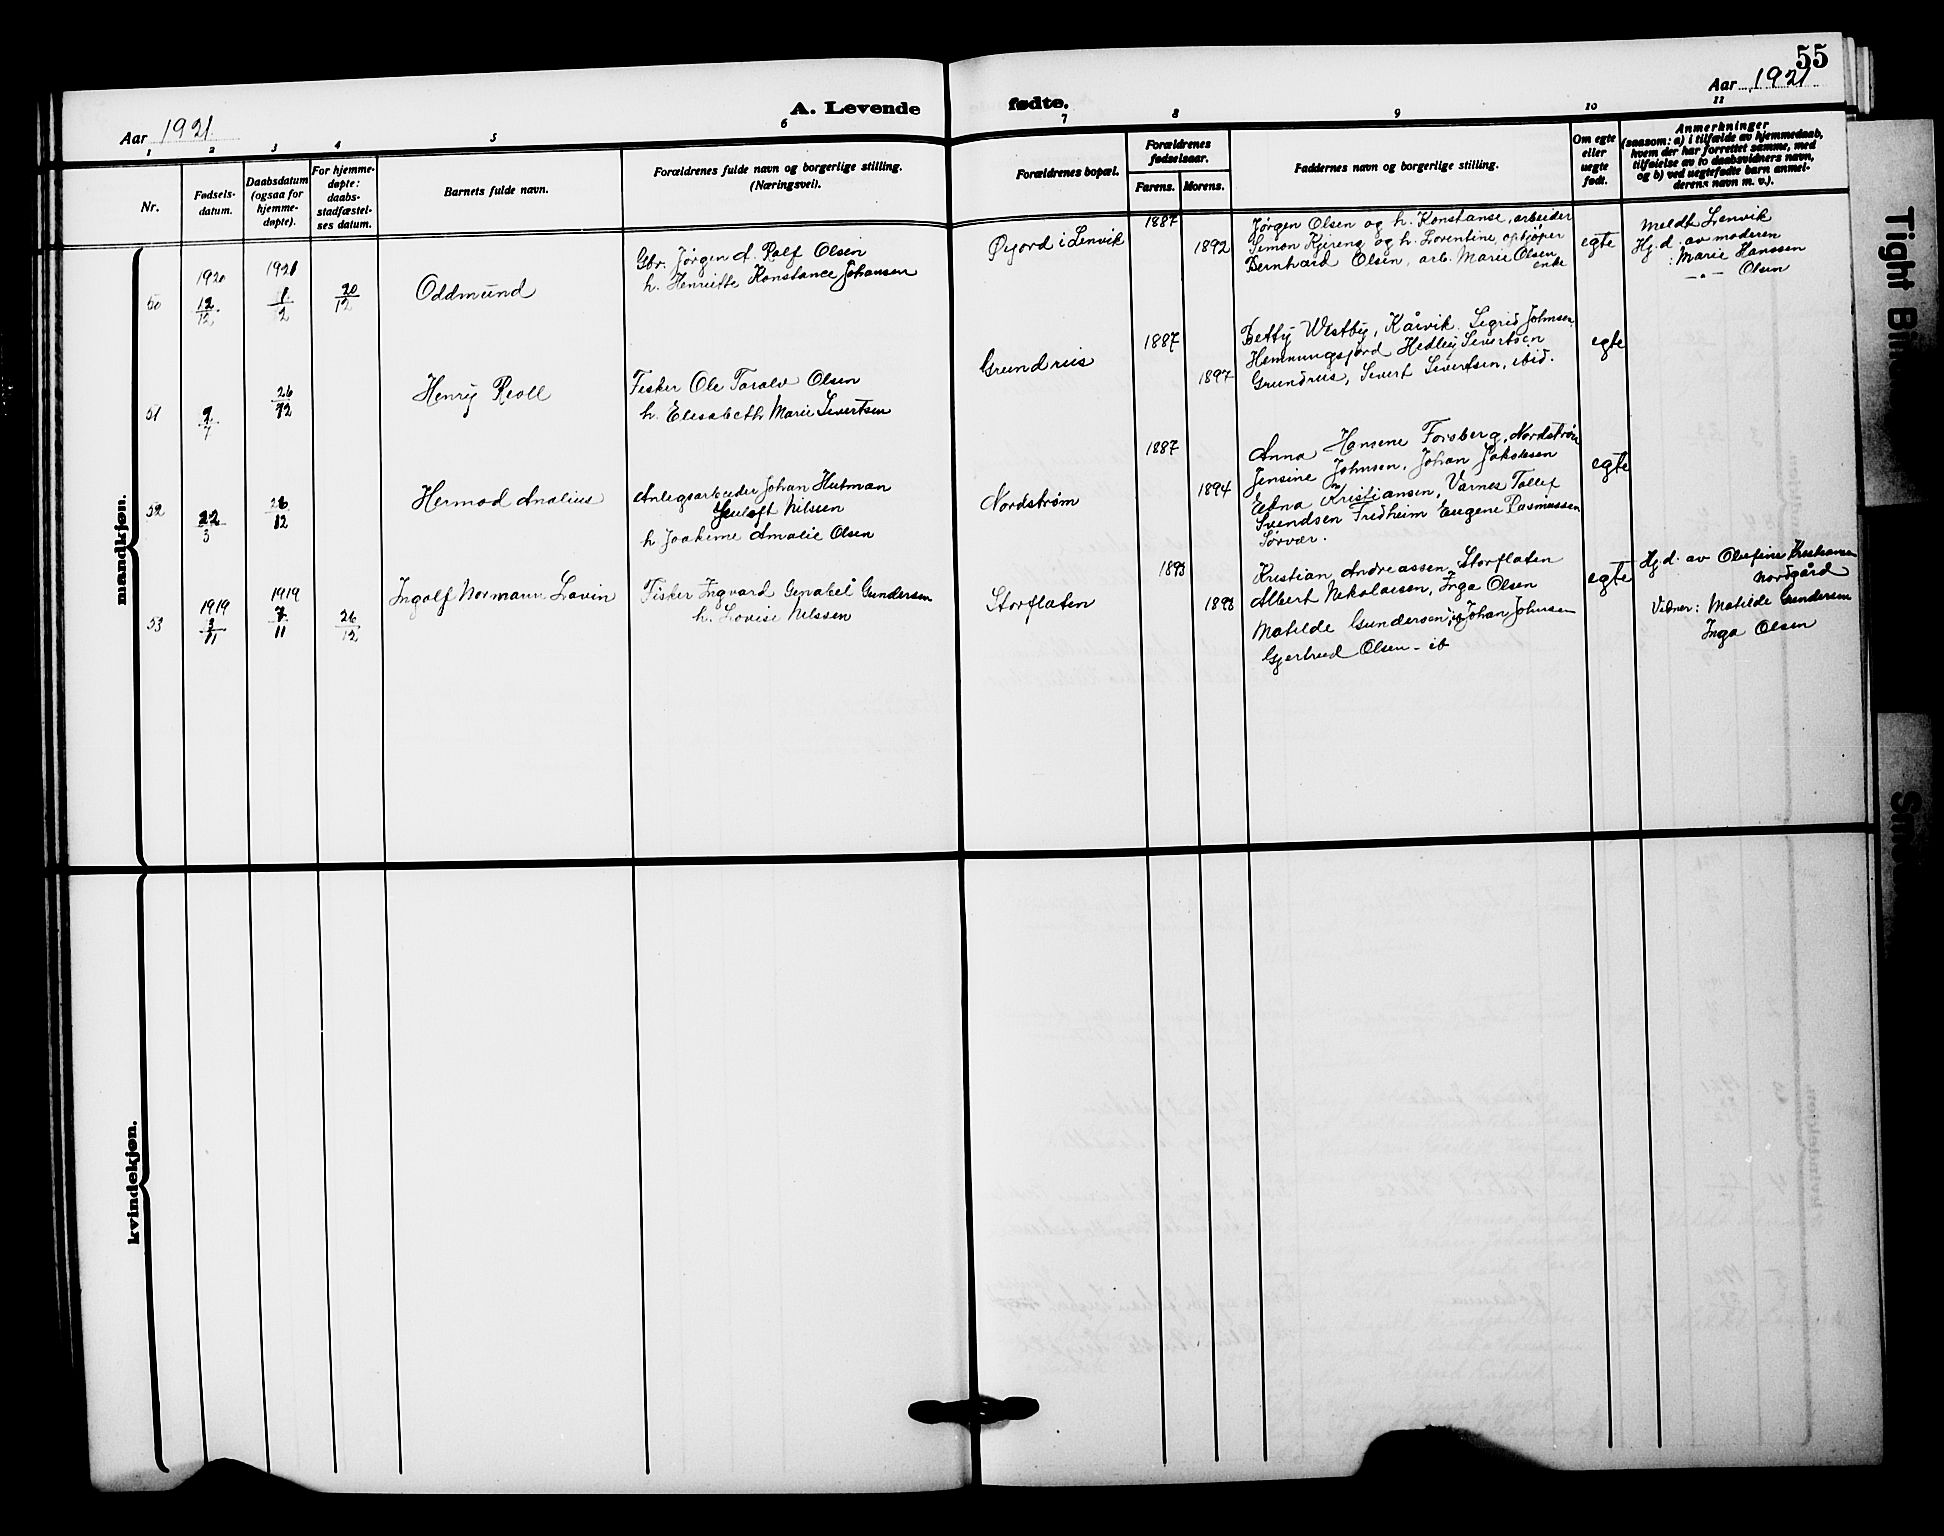 55
Aar 1921
A. Levende fødte.
Aar 1921
1 2 3 4 5 6 7 8 9 10 11
Nr.
Fødsels-
datum.
Daabsdatum
(ogsaa for
hjemme-
døpte).
For hjemme-
døpte:
daabs-
stadfæstel-
ses datum.
Barnets fulde navn.
Forældrenes fulde navn og borgerlige stilling.
(Næringsvei).
Forældrenes bopæl.
Forældrenes
fødselsaar.
Farens. Morens.
Faddernes navn og borgerlige stilling.
Om egte
eller
uegte
født.
Anmerkninger
(saasom: a) i tilfælde av hjemmedaab,
hvem der har forrettet samme, med
tilføielse av to daabsvidners navn,
og b) ved uegtefødte barn anmel-
derens navn m. v.).
mandkjøn.
50
1920
12/12
1921
1/2
20/12
Oddmund
Gbr. Jørgen A. Rolf Olsen
h. Henriette Konstance Johansen
Øyjord i Lenvik
1887
1892
Jørgen Olsen og h. Konstanse, arbeider
Simon Kjereng og h. Lorentine, opkjøper
Bernhard Olsen, arb. Marie Olsen
egte
meldt Lenvik
Hj.d. av moderen
: Marie Hanssen
— " — Olsen
51
26/12
Henry Reoll
Fisker Ole Toralv Olsen
h. Elisabeth Marie Sivertsen
Grundreis
1887
1897
Betty Westby, Kårvik. Sigrid Johnsen,
Hemmungsfjord Hedley Sivertsen
Grundreis, Sivert Sivertsen, ibid.
egte
52
22/3
26/12
Hermod Analius
Anlegsarbeider Johan Hutman
Nilsen
h Joakime Amalie Olsen
Nordstrøm
1887
1894
Anna Hansene Forsberg, Nordstrøm
Jensine Johnsen, Johan Jakobsen
Edna Kristiansen, Varnes Tollef
Svendsen Fredheim Eugene Rasmussen
Sørvær.
egte
53
1919
3/11
1919
7/11
26/12
Ingolf Normann Lavin
Fisker Ingvard Genakel Gundersen
h. Lovise Nilssen
Storflaten
1893
1893
Kristian Andreassen, Storflaten
Albert Nikolaisen, Inga Olsen
Matilde Gundersen, ib Johan Johnsen
Gjertrud Olsen - ib
egte
Hj.d. av Olufine Kristiansen
Nordgård
Vidner: Matilde Gundersen
Inga Olsen
kvindekjøn.
Tight Bin